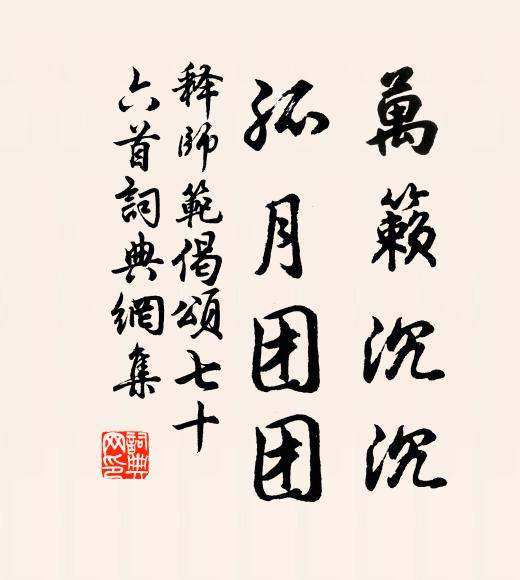 萬籟沉沉
孤月团团
释師範偈頌七十
六首詞典網集
詞典网印